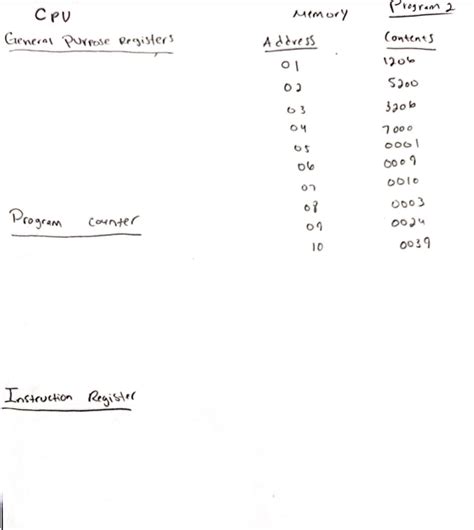 CPU Memory Program 2
General Purpose Registers Address Contents
01 1206
02 5200
03 3206
04 7000
05 0001
06 0009
07 0010
08 0003
Program Counter 09 0024
10 0039
Instruction Register